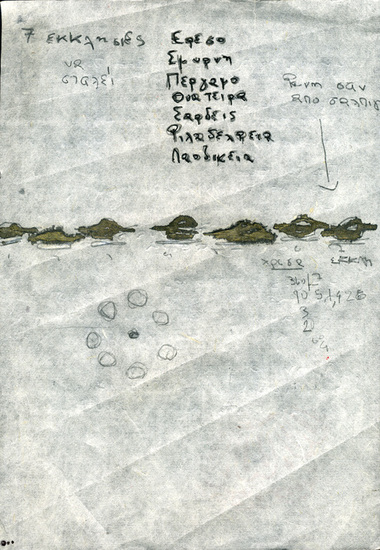 7 εκκλησιες
να
σταλεί
Εφεσο
Σμυρνη
Περγαμο
Θυατειρα
Σαρδεις
Φιλαδελφεια
Λαοδικεια
Φωνη σαν
απο σαλπιγ
360 7
10 51,428
3
2